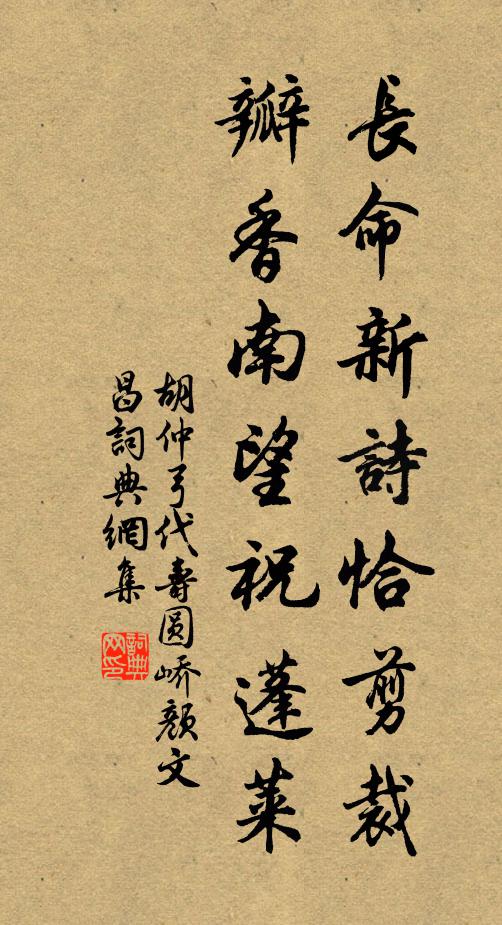 長命新詩恰剪裁
瓣香南望祝蓬萊
胡仲弓代壽圓嶠顏文
昌詞典網集
詞典網印